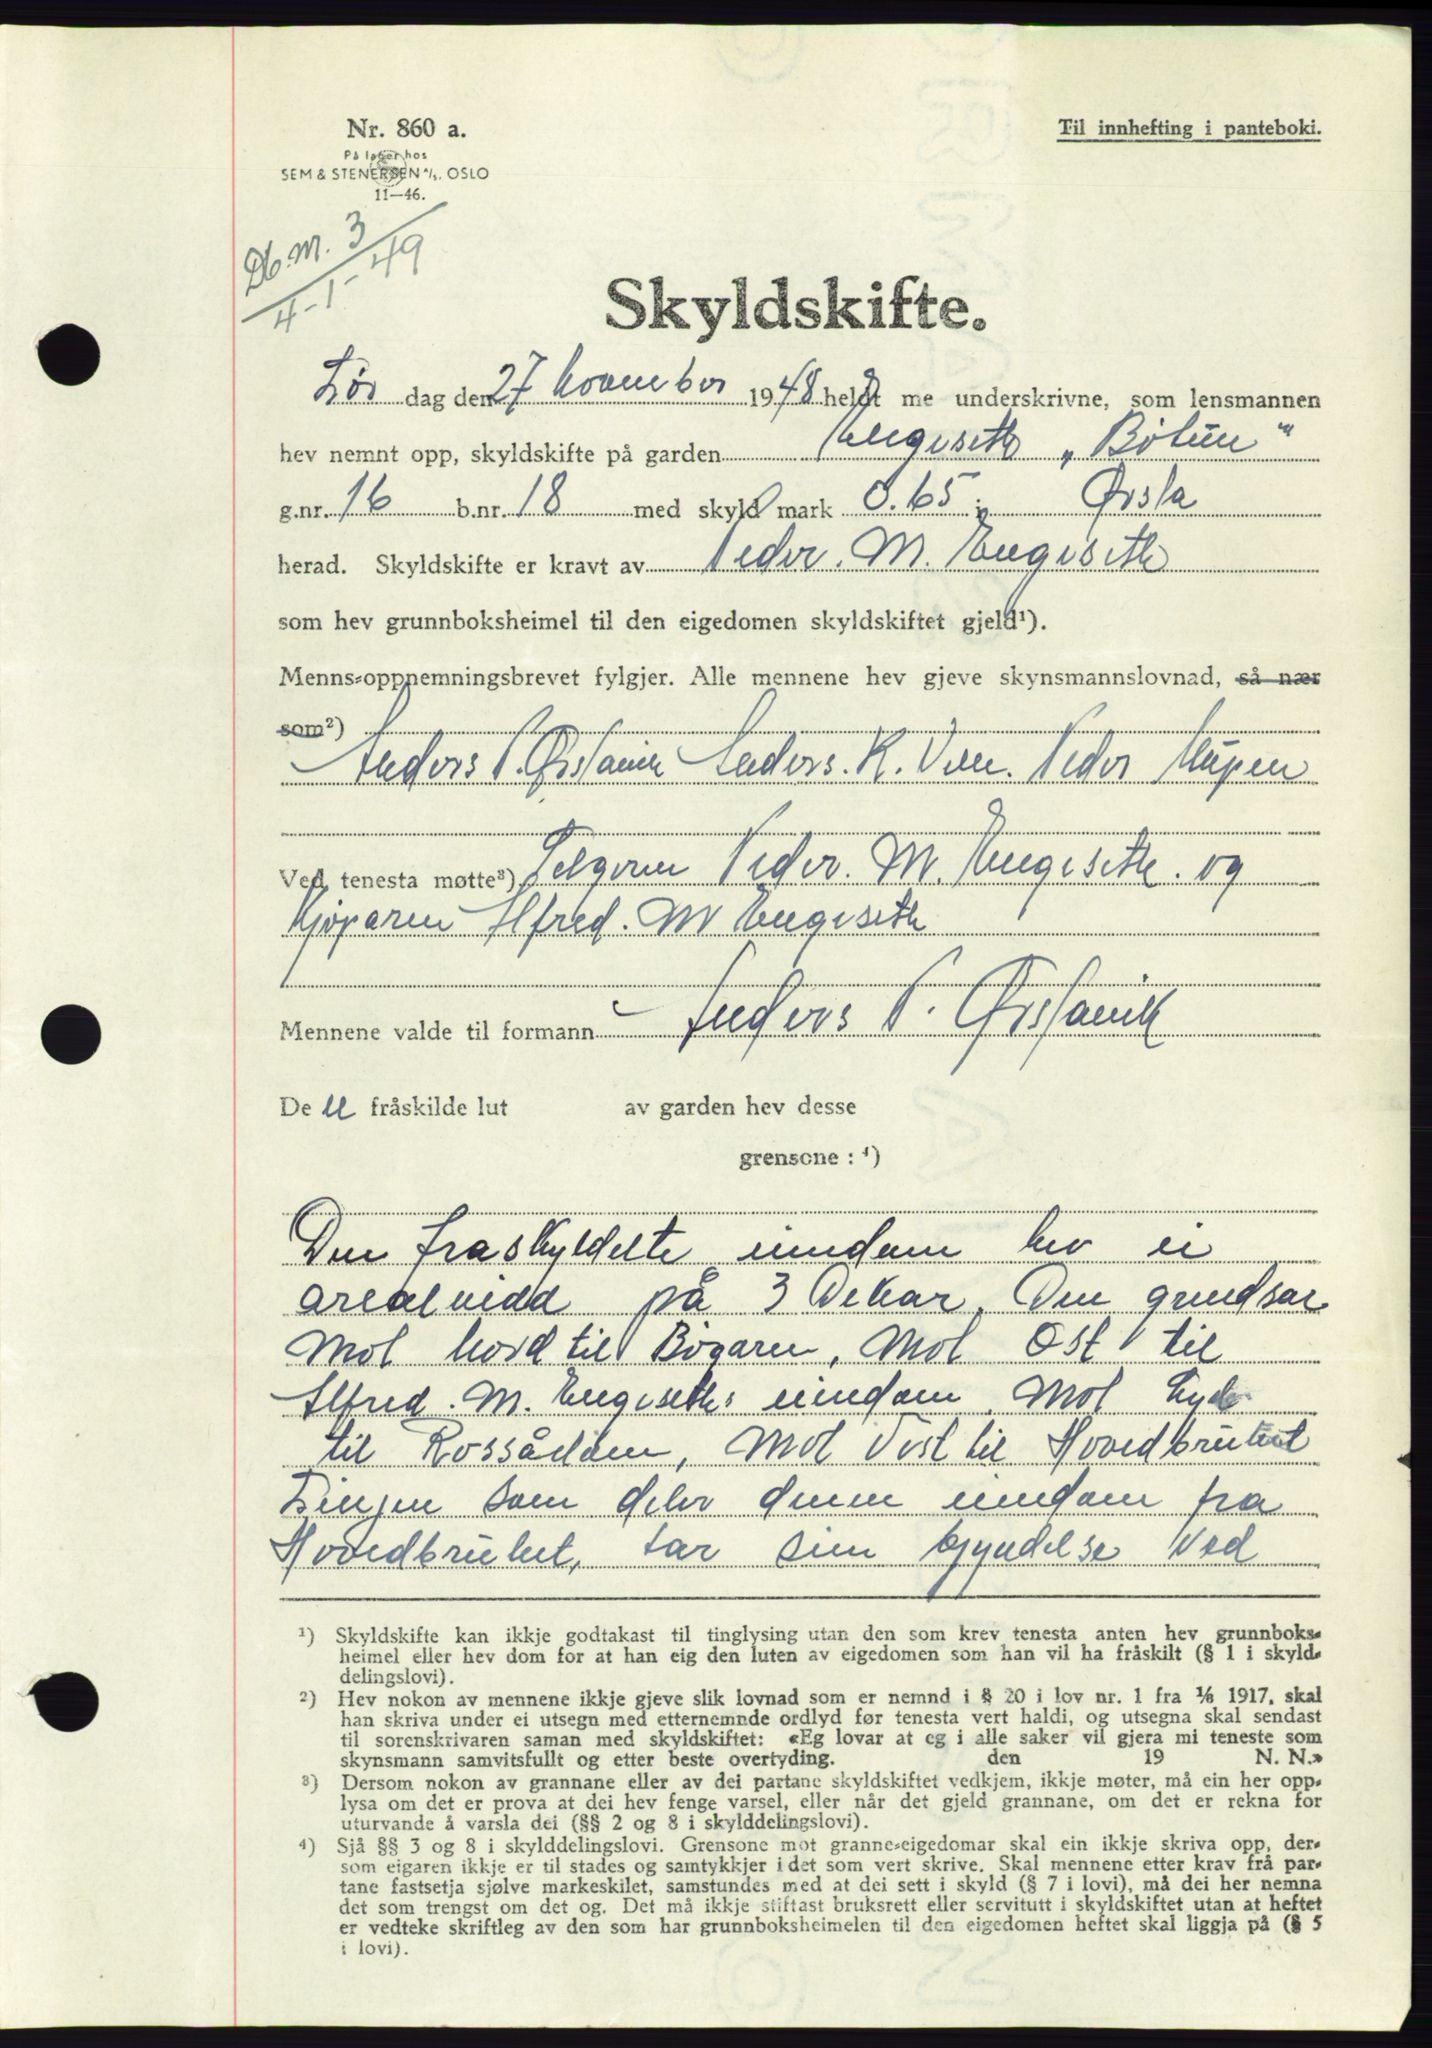 Nr. 860 a.
På lager hos
SEM & STENERSEN A/S, OSLO
11—46.
Til innhefting i panteboki.
Db. nr. 3
4-1-49
Skyldskifte.
Lør dag den 27 November 1948 heldt me underskrivne, som lensmannen
hev nemnt opp, skyldskifte på garden Engeseth „Bøtun"
g.nr. 16 b.nr. 18 med skyld mark 0.65 i Ørsta
herad. Skyldskifte er kravt av Peder. M. Engeseth
som hev grunnboksheimel til den eigedomen skyldskiftet gjeld¹).
Menns-oppnemningsbrevet fylgjer. Alle mennene hev gjeve skynsmannslovnad, så nær
som²)
Anders P. Ørstavik Anders. K. Vik. Peder Mupen
Ved tenesta møtte³) Selgeren Peder. M. Engeseth. og
Kjøparen Alfred. M Engeseth
Mennene valde til formann Anders P. Ørstavik
De n fråskilde lut av garden hev desse
grensone : ⁴)
Den fraskyldelte eiendom hev ei
arealvidd på 3 Dekar. Den grendsar
Mot Nord til Bøgaren, Mot Øst til
Alfred. M. Engeseths eiendom. Mot Syd
til Rossådam, Mot Vest til Hovedbruket
Linjen som deler denne eiendom fra
Hovedbruket, tar sin begyndelse ved
¹) Skyldskifte kan ikkje godtakast til tinglysing utan den som krev tenesta anten hev grunnboks-
heimel eller hev dom for at han eig den luten av eigedomen som han vil ha fråskilt (§ 1 i skyld-
delingslovi).
²) Hev nokon av mennene ikkje gjeve slik lovnad som er nemnd i § 20 i lov nr. 1 fra 1/6 1917, skal
han skriva under ei utsegn med etternemnde ordlyd før tenesta vert haldi, og utsegna skal sendast
til sorenskrivaren saman med skyldskiftet: «Eg lovar at eg i alle saker vil gjera mi teneste som
skynsmann samvitsfullt og etter beste overtyding. den 19 N. N.»
³) Dersom nokon av grannane eller av dei partane skyldskiftet vedkjem, ikkje møter, må ein her opp-
lysa om det er prova at dei hev fenge varsel, eller når det gjeld grannane, om det er rekna for
uturvande å varsla dei (§§ 2 og 8 i skylddelingslovi).
⁴) Sjå §§ 3 og 8 i skylddelingslovi. Grensone mot granne-eigedomar skal ein ikkje skriva opp, der-
som eigaren ikkje er til stades og samtykkjer i det som vert skrive. Skal mennene etter krav frå par-
tane fastsetja sjølve markeskilet, samstundes med at dei sett i skyld (§ 7 i lovi), må dei her nemna
det som trengst om det og. Det må ikkje stiftast bruksrett eller servitutt i skyldskiftet utan at heftet
er vedteke skriftleg av den som har grunnboksheimelen til den eigedomen heftet skal liggja på (§ 5
i lovi).